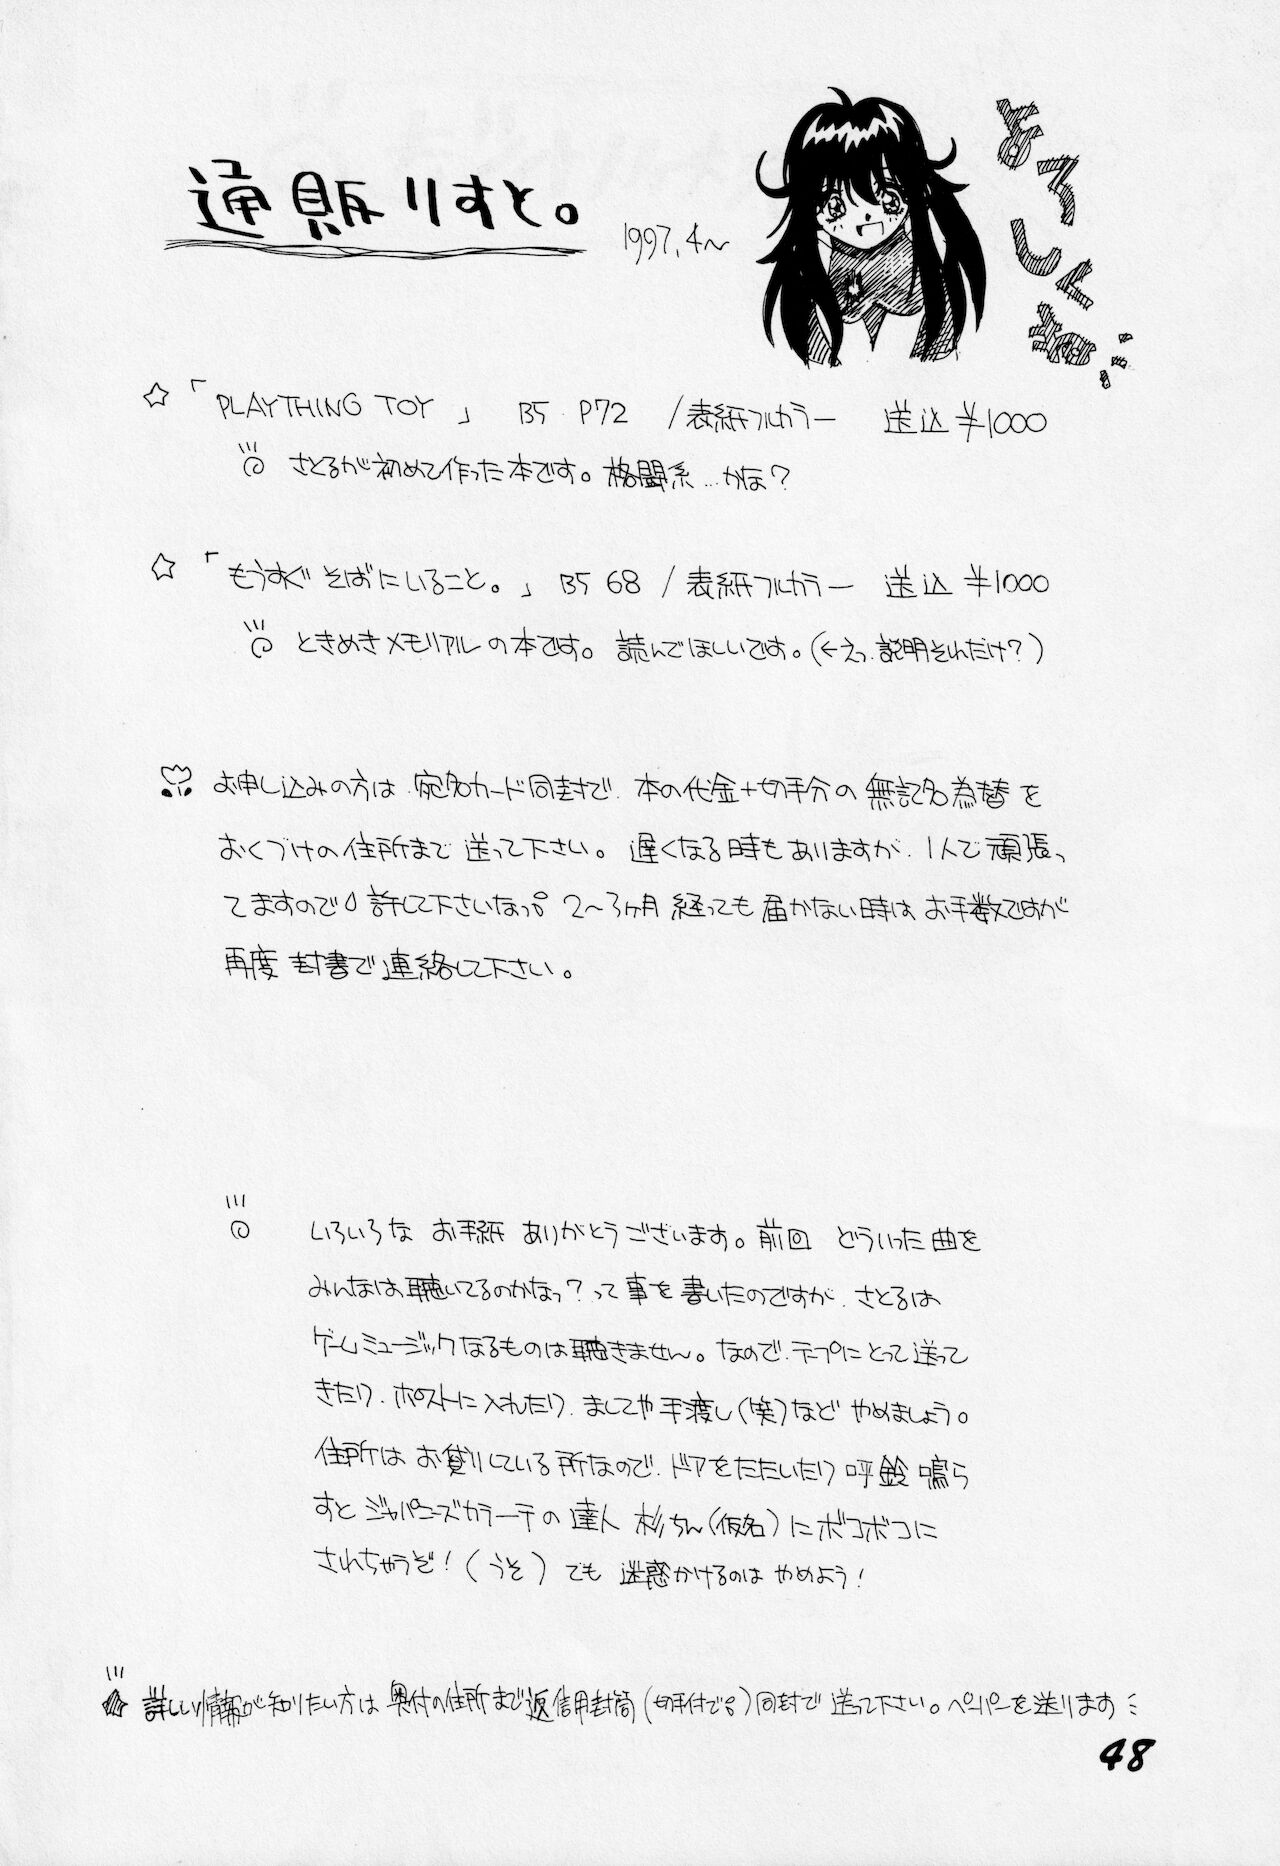 通販りすと。
1997.4〜
よろしくね!
☆「PLAYTHING TOY」 B5 P72 /表紙フルカラー 送込¥1000
さとるが初めて作った本です。格闘系…かな?
☆「もうすぐそばにいること。」B5 68 /表紙フルカラー 送込¥1000
ときめきメモリアルの本です。読んでほしいです。(←えっ.説明それだけ?)
お申し込みの方は、宛名カード同封で、本の代金+切手分の無記名為替を
おくづけの住所まで送って下さい。遅くなる時もありますが、1人で頑張っ
てますので許して下さいなっ。2〜3ヶ月経っても届かない時はお手数ですが
再度封書で連絡して下さい。
いろいろなお手紙ありがとうございます。前回どういった曲を
みんなは聴いてるのかなっ?って事を書いたのですが、さとるは
ゲームミュージックなるものは聴きません。なので、テープにとって送って
きたり、ポストに入れたり、ましてや手渡し(笑)などやめましょう。
住所はお貸りしている所なので、ドアをたたいたり呼鈴鳴ら
すとジャパニーズカラーテの達人杉ちん(仮名)にボコボコに
されちゃうぞ!(うそ)でも迷惑かけるのはやめよう!
詳しい情報が知りたい方は奥付の住所まで返信用封筒(切手付で。)同封で送って下さい。ペーパーを送ります
48